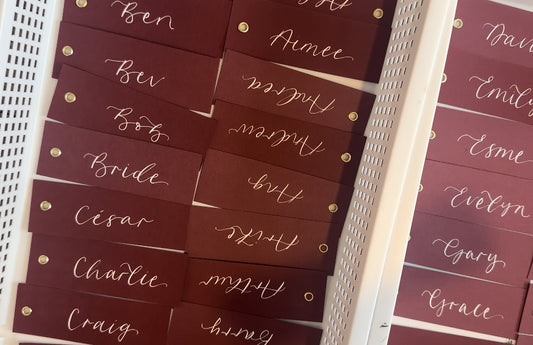 Ben
Bev
Bob
Bride
César
Charlie
Craig
Aimee
Andrea
Andrew
Ang
Arthur
Barry
Davi
Emily
Esme
Evelyn
Gary
Grace